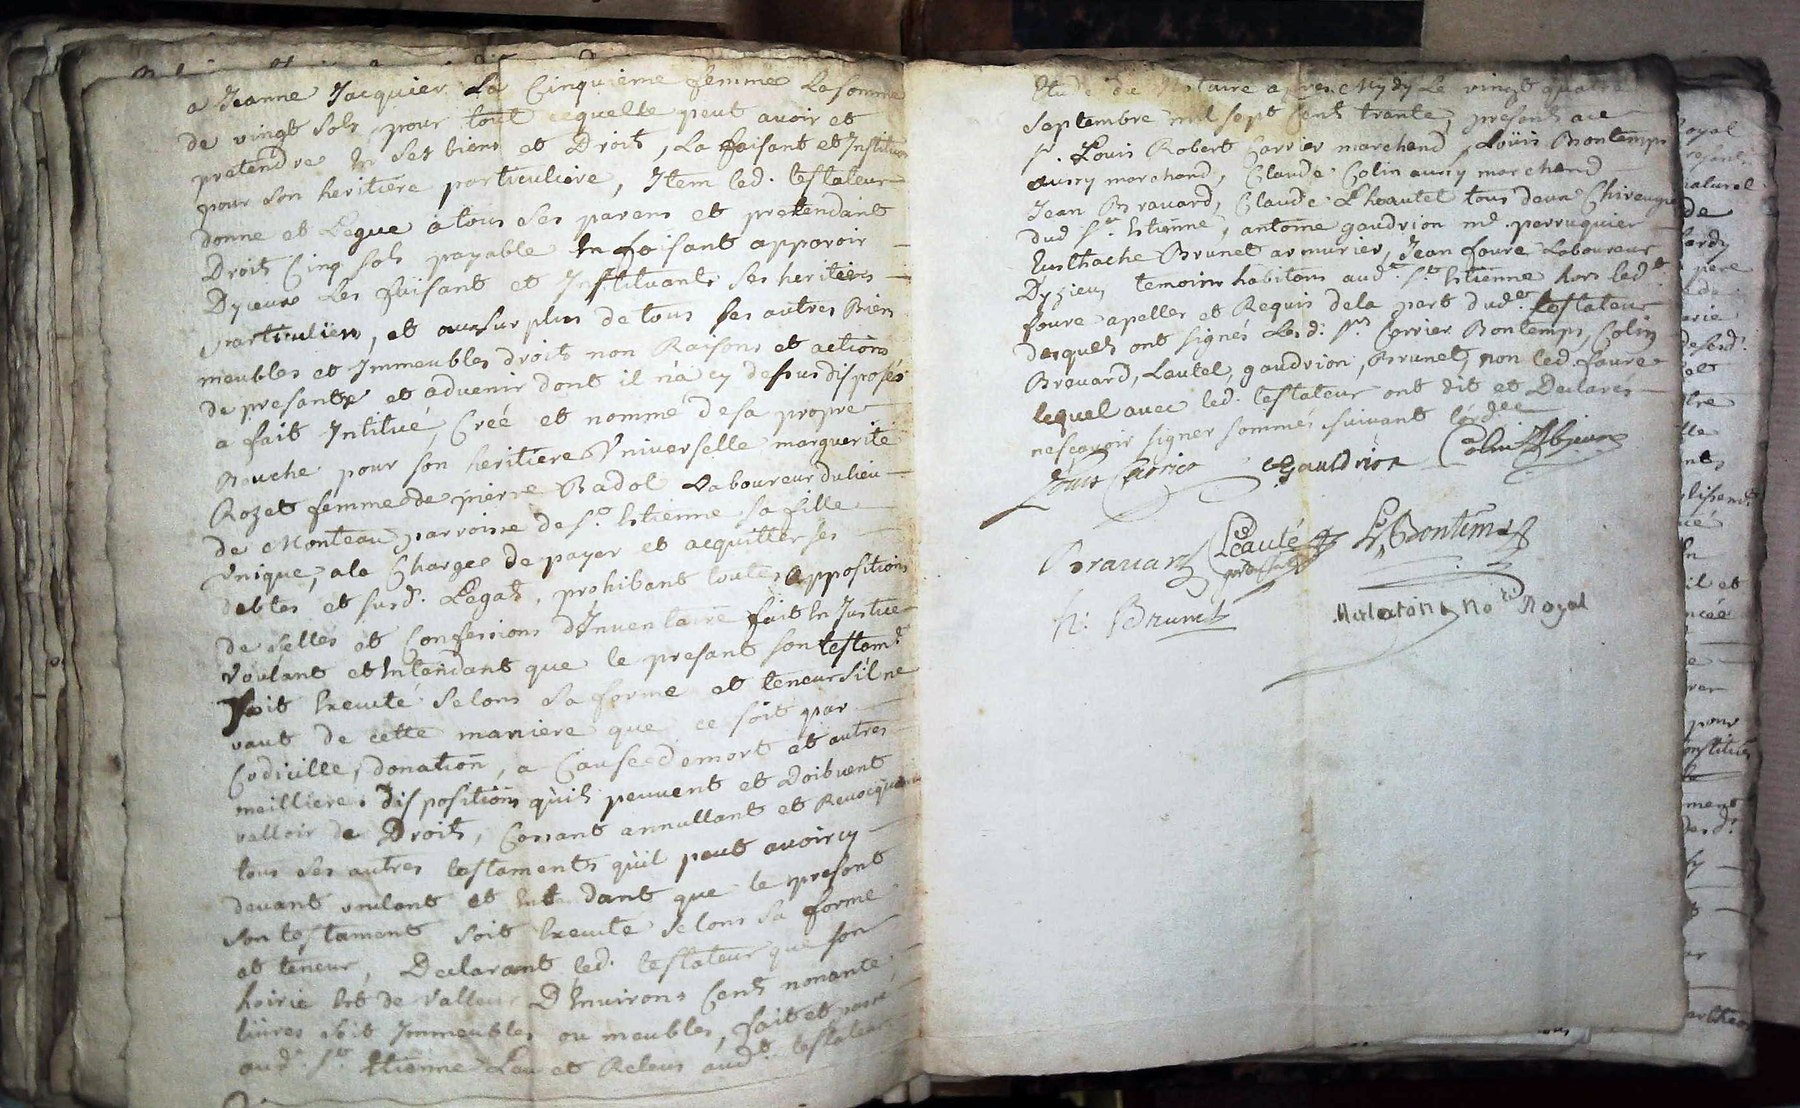 a Jeanne Jacquier La Cinquieme femme La somme
de vingt sols, pour tout cequelle peut avoir et
pretendre En Ses biens et Droits, La faisant et Instituant
pour son heritiere particuliere, Item led. testateur
donne et Legue a tous ses parens et pretendant
Droits Cinq sols payable En faisant apparoir
Dyceux Les faisant et Instituants ses heritiers
particuliers, et au surplus de tous ses autres Biens
meubles et Immeubles droits nom Raisons et actions
de presants et advenir dont il n'a cy dessus disposés
a fait Intitué, Créé et nommé de sa propre
Bouche pour son heritiere Universelle marguerite
Rozet femme de pierre Badol Laboureur du lieu
de Monteau parroisse de St. Estienne sa fille
unique, a la Charge de payer et acquitter ses
debtes et susd. Legats, prohibant toutes appositions
de sellés et Confessions d'Inventaire fait En Justice
voulant et Entendant que le presant son testamt.
Soit Exeuté selons sa forme et teneur s'il ne
vaut de cette maniere que ce soit par
Codicille, donation, a Cause de mort et autres
meilliere dispositions qu'ils peuvent et doibvent
valloir de Droits, Cassant annullant et Revocquant
tous ses autres testaments qu'il peut avoir cy
devant voulant et Entendant que le presant
son testament soit Exeuté selons sa forme
et teneur, Declarant led. testateur que son
hoirie Est de valleur D'Environs Cents nonante
livres soit Immeubles ou meubles, fait et passé
aud. St. Etienne Leu et Releus aud. testateur
Etude du Notaire apres Mydy Le vingt quatre
Septembre mil sept Cents trante, presents a ce
Sr. Louis Robert Carrier marchand, Louis Bontemps
aussy marchand, Claude Colin aussy marchand
Jean Bravard, Claude Lheautel tous deux Chireugien
dud St. Estienne, antoine gaudrion me. perruquier
Eusthache Brunet armurier, Jean foure Laboureur
Dyzieux temoins habitans audt. St. Estienne hors ledt.
foure apelles et Requis de la part dudt. testateur
desquels ont signés Lesd. Srs. Carrier Bontemps, Colin
Bravard, Lautel, gaudrion, Brunet, non led. faure
lequel avec led. testateur ont dit et Declares
ne scavoir signer sommés suivant lordce
Louis Carrier Gaudrion Colin
Bravard Léauté L. Bontems
h. Brunet
Malaton No.re Royal